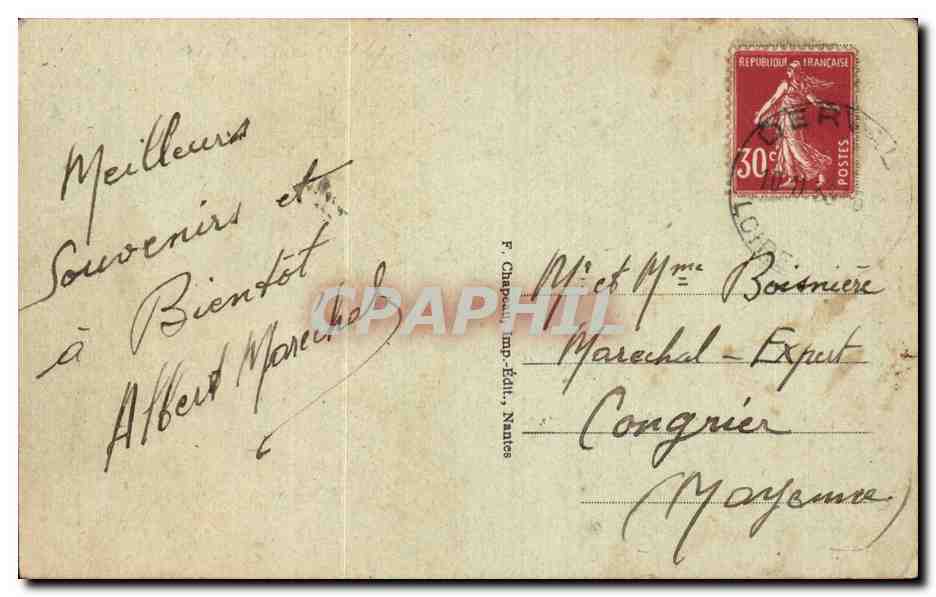 Meilleurs
Souvenirs et
à Bientôt
Albert Marechal
F. Chapeau, Imp.-Édit., Nantes
REPUBLIQUE FRANÇAISE
30c
POSTES
DERVAL
LOIRE
Mr et Mme Boisnière
Marechal - Expert
Congrier
(Mayenne)
CPAPHIL